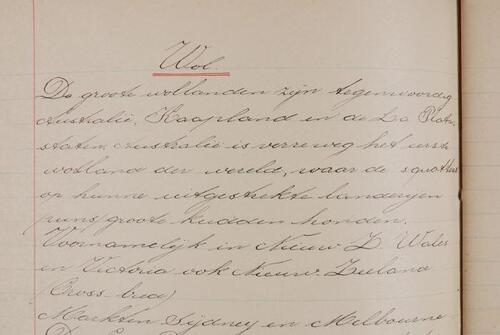 Wol.
De groote wollanden zijn tegenwoordig
Australië, Kaapland en de La Plata-
staten. Australië is verreweg het eerste
wolland der wereld, waar de squatters
op hunne uitgestrekte landerijen
groote kudden houden.
Voornamelijk in Nieuw Z. Wales
en Victoria ook Nieuw. Zeeland
(Cross-bred)
Markten Sydney en Melbourne